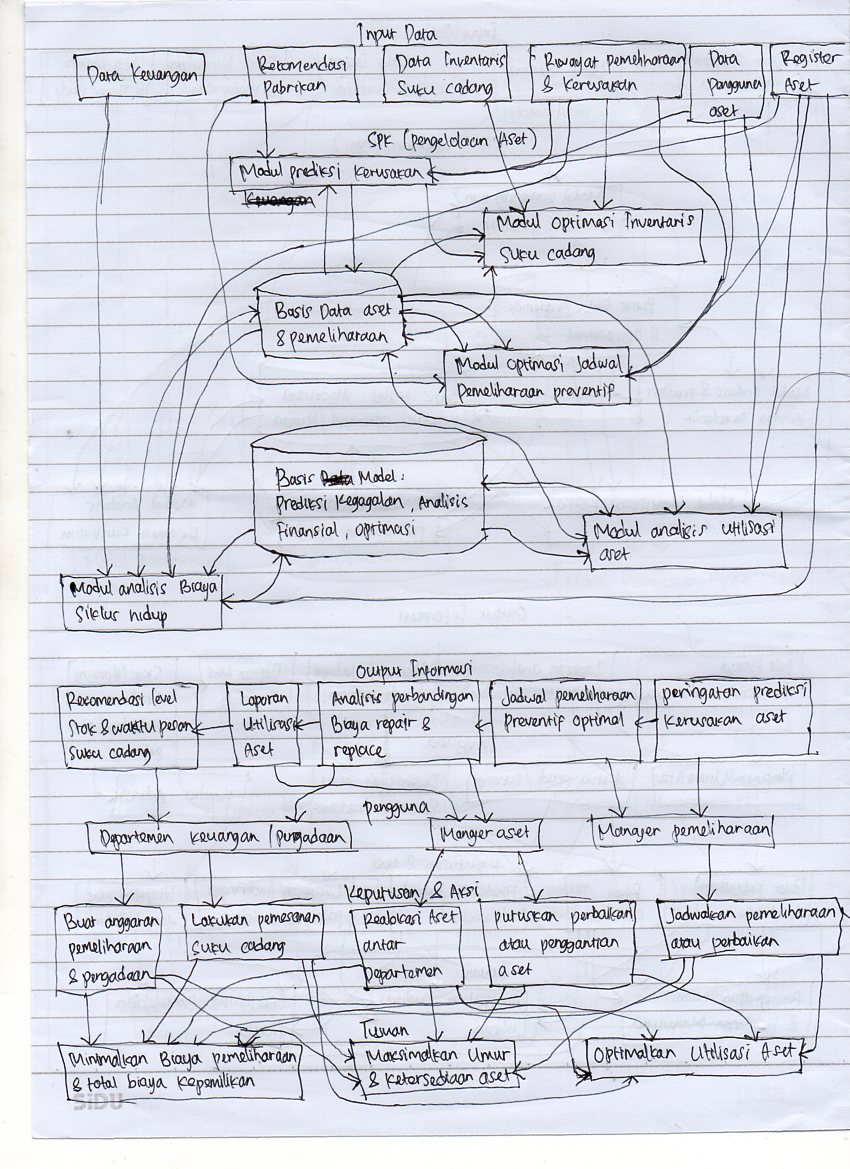 Input Data
Data Keuangan
Rekomendasi
Pabrikan
Data Inventaris
Suku cadang
Riwayat pemeliharaan
& Kerusakan
Data
Pengguna
aset
Register
Aset
SPK (pengelolaan Aset)
Modul prediksi kerusakan
Keuangan
Modul Optimasi Inventaris
Suku cadang
Basis Data aset
& pemeliharaan
Modul Optimasi Jadwal
Pemeliharaan preventif
Basis Data Model:
Prediksi Kegagalan, Analisis
Finansial, Optimasi
Modul analisis Utilisasi
aset
Modul analisis Biaya
Siklus hidup
Output Informasi
Rekomendasi level
Stok & waktu pesan
suku cadang
Laporan
Utilisasi
Aset
Analisis perbandingan
Biaya repair &
replace
Jadwal pemeliharaan
Preventif Optimal
peringatan prediksi
Kerusakan aset
pengguna
Departemen Keuangan / pengadaan
Manger aset
Manajer pemeliharaan
Keputusan & Aksi
Buat anggaran
pemeliharaan
& pengadaan
Lakukan pemesanan
Suku cadang
Realokasi Aset
antar
Departemen
putuskan perbaikan
atau penggantian
aset
Jadwalkan pemeliharaan
atau perbaikan
Tujuan
Minimalkan Biaya pemeliharaan
& total biaya kepemilikan
Maksimalkan Umur
& Ketersediaan aset
Optimalkan Utilisasi Aset
SIDU